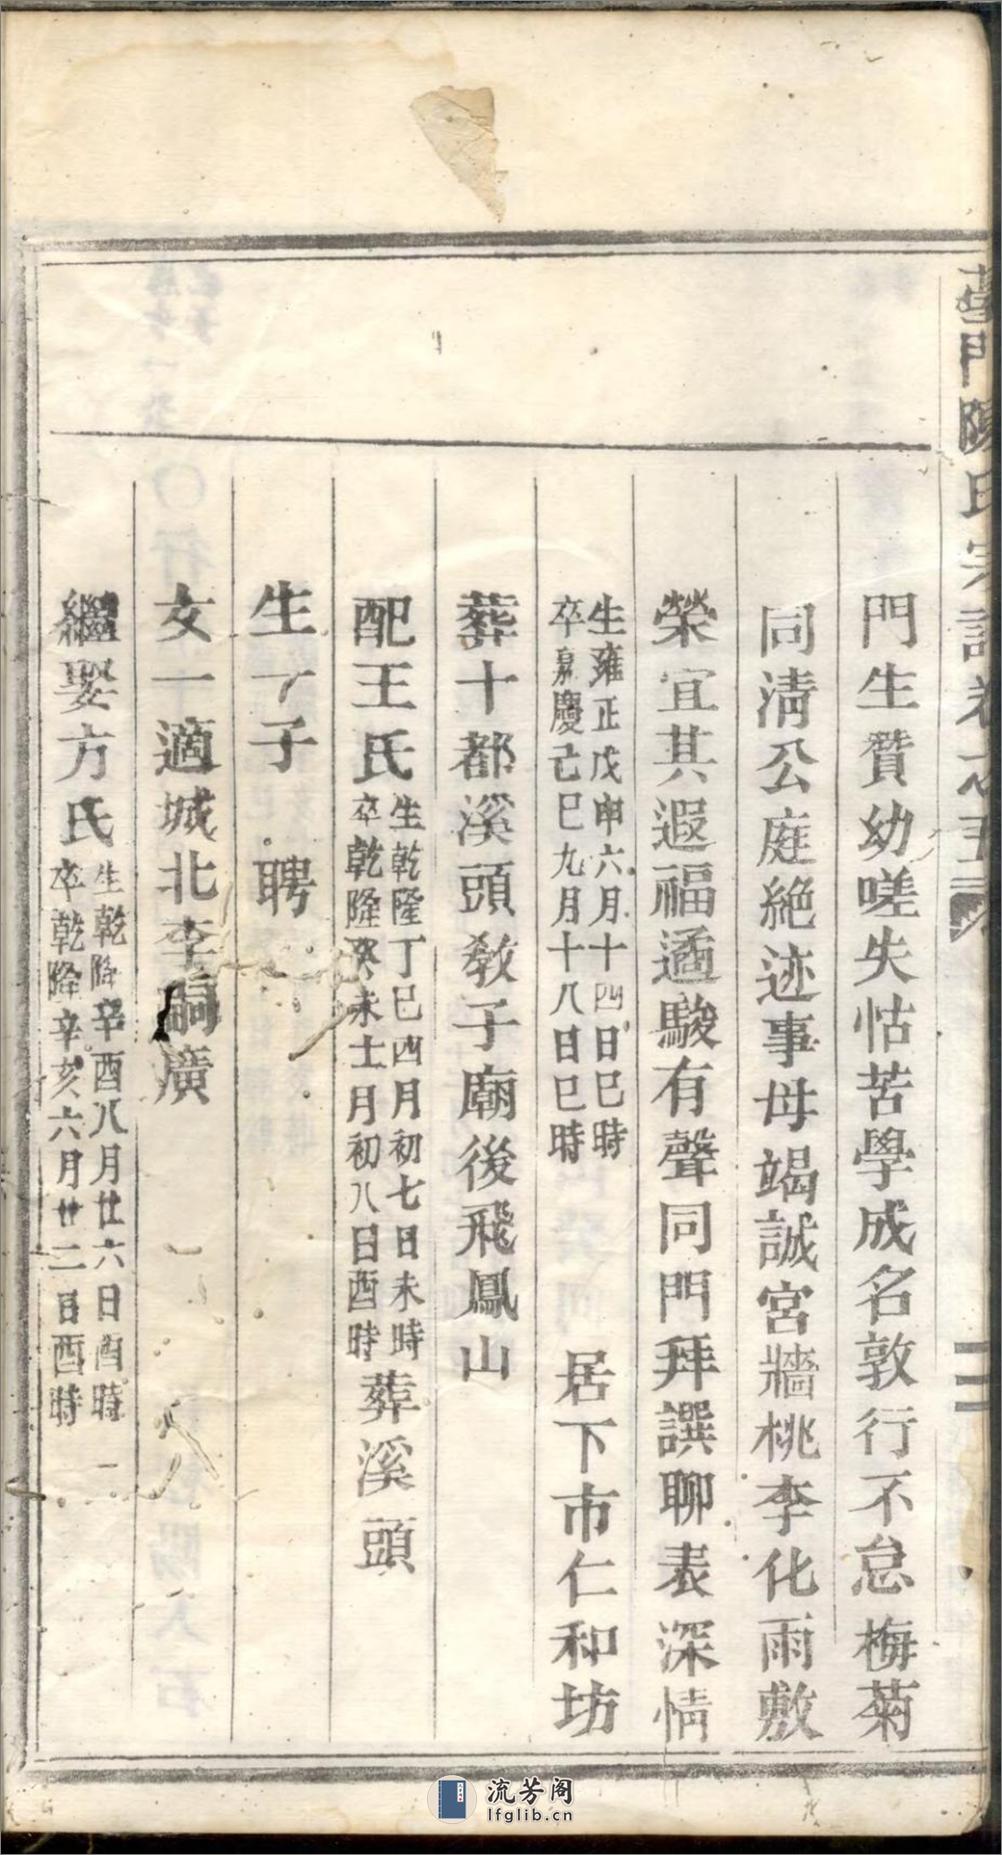 門陳氏宗譜卷之五
二
門生贊幼嗟失怙苦學成名敦行不怠梅菊
同清公庭絶迹事母竭誠宮牆桃李化雨敷
榮宜其遐福遹駿有聲同門拜譔聊表深情
生雍正戊申六月十四日巳時
卒嘉慶己巳九月十八日巳時
居下市仁和坊
葬十都溪頭敎子廟後飛鳳山
配王氏
生乾隆丁巳四月初七日未時
卒乾隆癸未十一月初八日酉時
葬溪頭
生一子 聘
女一適城北李嗣廣
繼娶方氏
生乾隆辛酉八月廿六日酉時
卒乾隆辛亥六月廿二日酉時
流芳阁
lfglib.cn